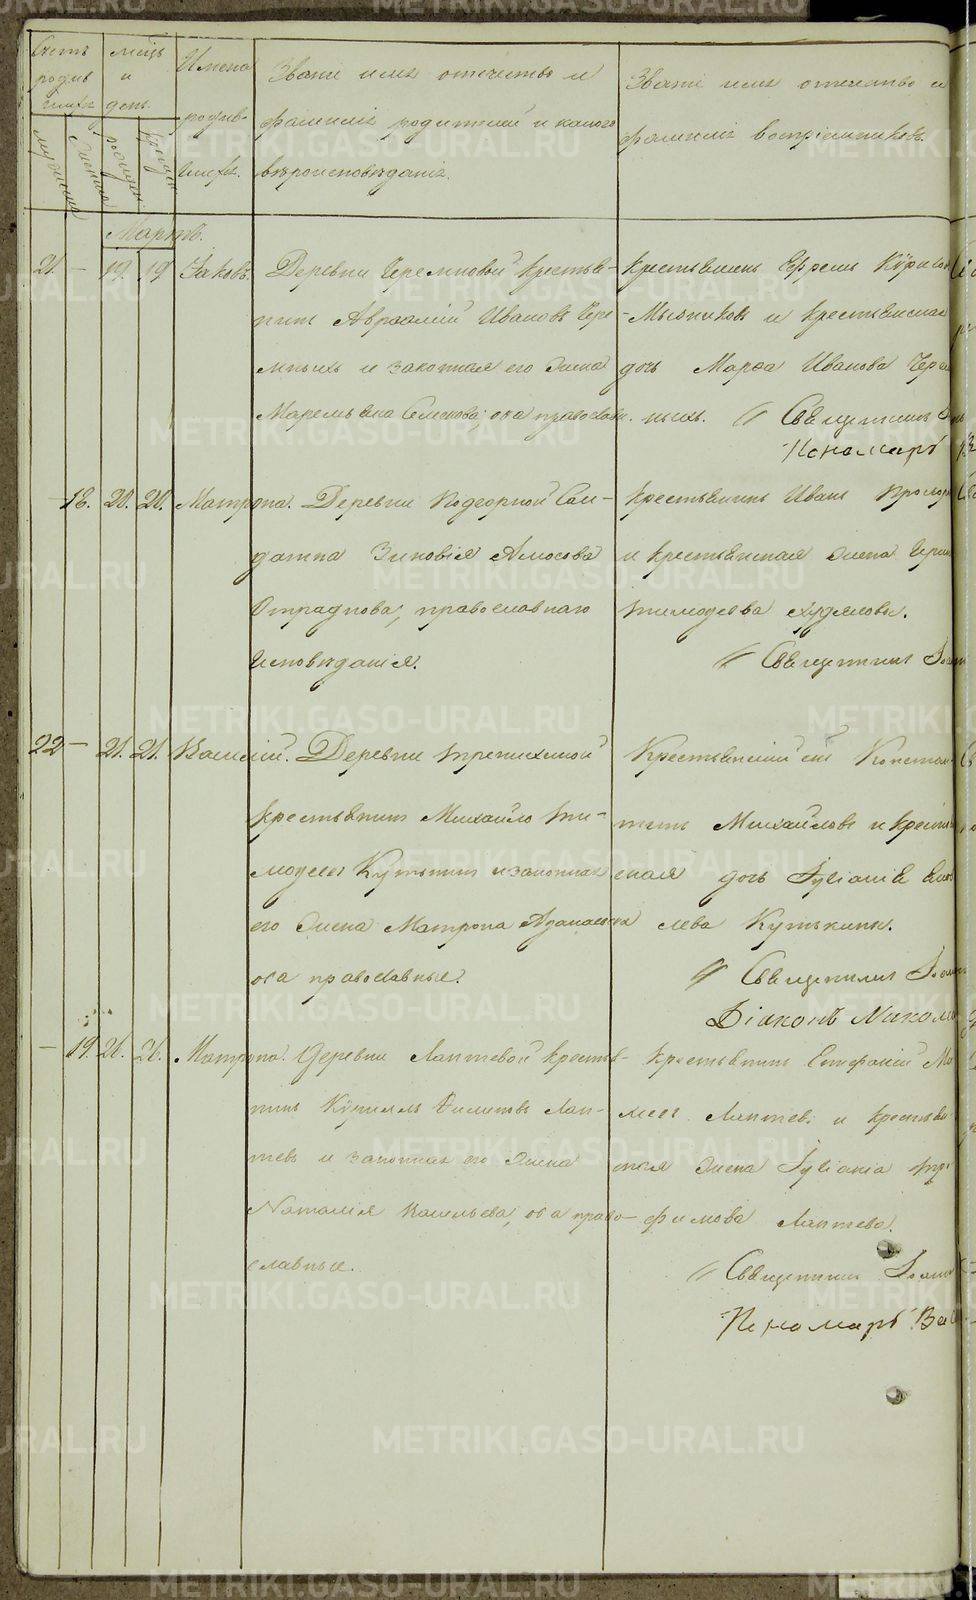 Счетъ родив шихся
мужеска
женска
мѣсяцъ и день
рожден
крещен
Имена родив- шихся.
Званіе имя отечество и
фамилія родителей и какого
вѣроисповѣданія.
Званіе имя отечество и
фамилія воспріемниковъ.
Мартъ.
21. — 19 19 Іаковъ. Деревни Черемновой крестья-
нинъ Авраамій Ивановъ Чере
мныхъ и законная его жена
Маремьяна Семенова; оба православн.
крестьянинъ Ефремъ
Мысниковъ и крестьянская
дочь Марѳа Иванова Черем
ныхъ. Священникъ
Пономарь
— 18. 20. 20. Матрона. Деревни Подгорной Сол-
датка Зиновія Амосова
Отраднова, православнаго
исповѣданія.
крестьянинъ Иванъ
и крестьянская жена
Тимоѳеева Худякова.
Священникъ Іоан
22 — 21. 21. Василій. Деревни Трепихиной
крестьянинъ Михайло Ти-
моѳеевъ Кутькинъ и законная
его жена Матрона Аѳанасьева
оба православные.
Крестьянскій сынъ Констан
тинъ Михайловъ и крестьян
ская дочь Іуліанія
лева Кутькины.
Священникъ Іоан
Діаконъ Никола
— 19. 21. 21. Матрона. Деревни Лаптевой крестья-
нинъ Кириллъ Филиповъ Лап-
тевъ и законная его жена
Наталія Васильева, оба право-
славные.
крестьянинъ Евфимій
Лаптевъ и крестьян
ская жена Іуліанія Тро
фимова Лаптева.
Священникъ Іоан
Пономарь Ва
METRIKI.GASO-URAL.RU